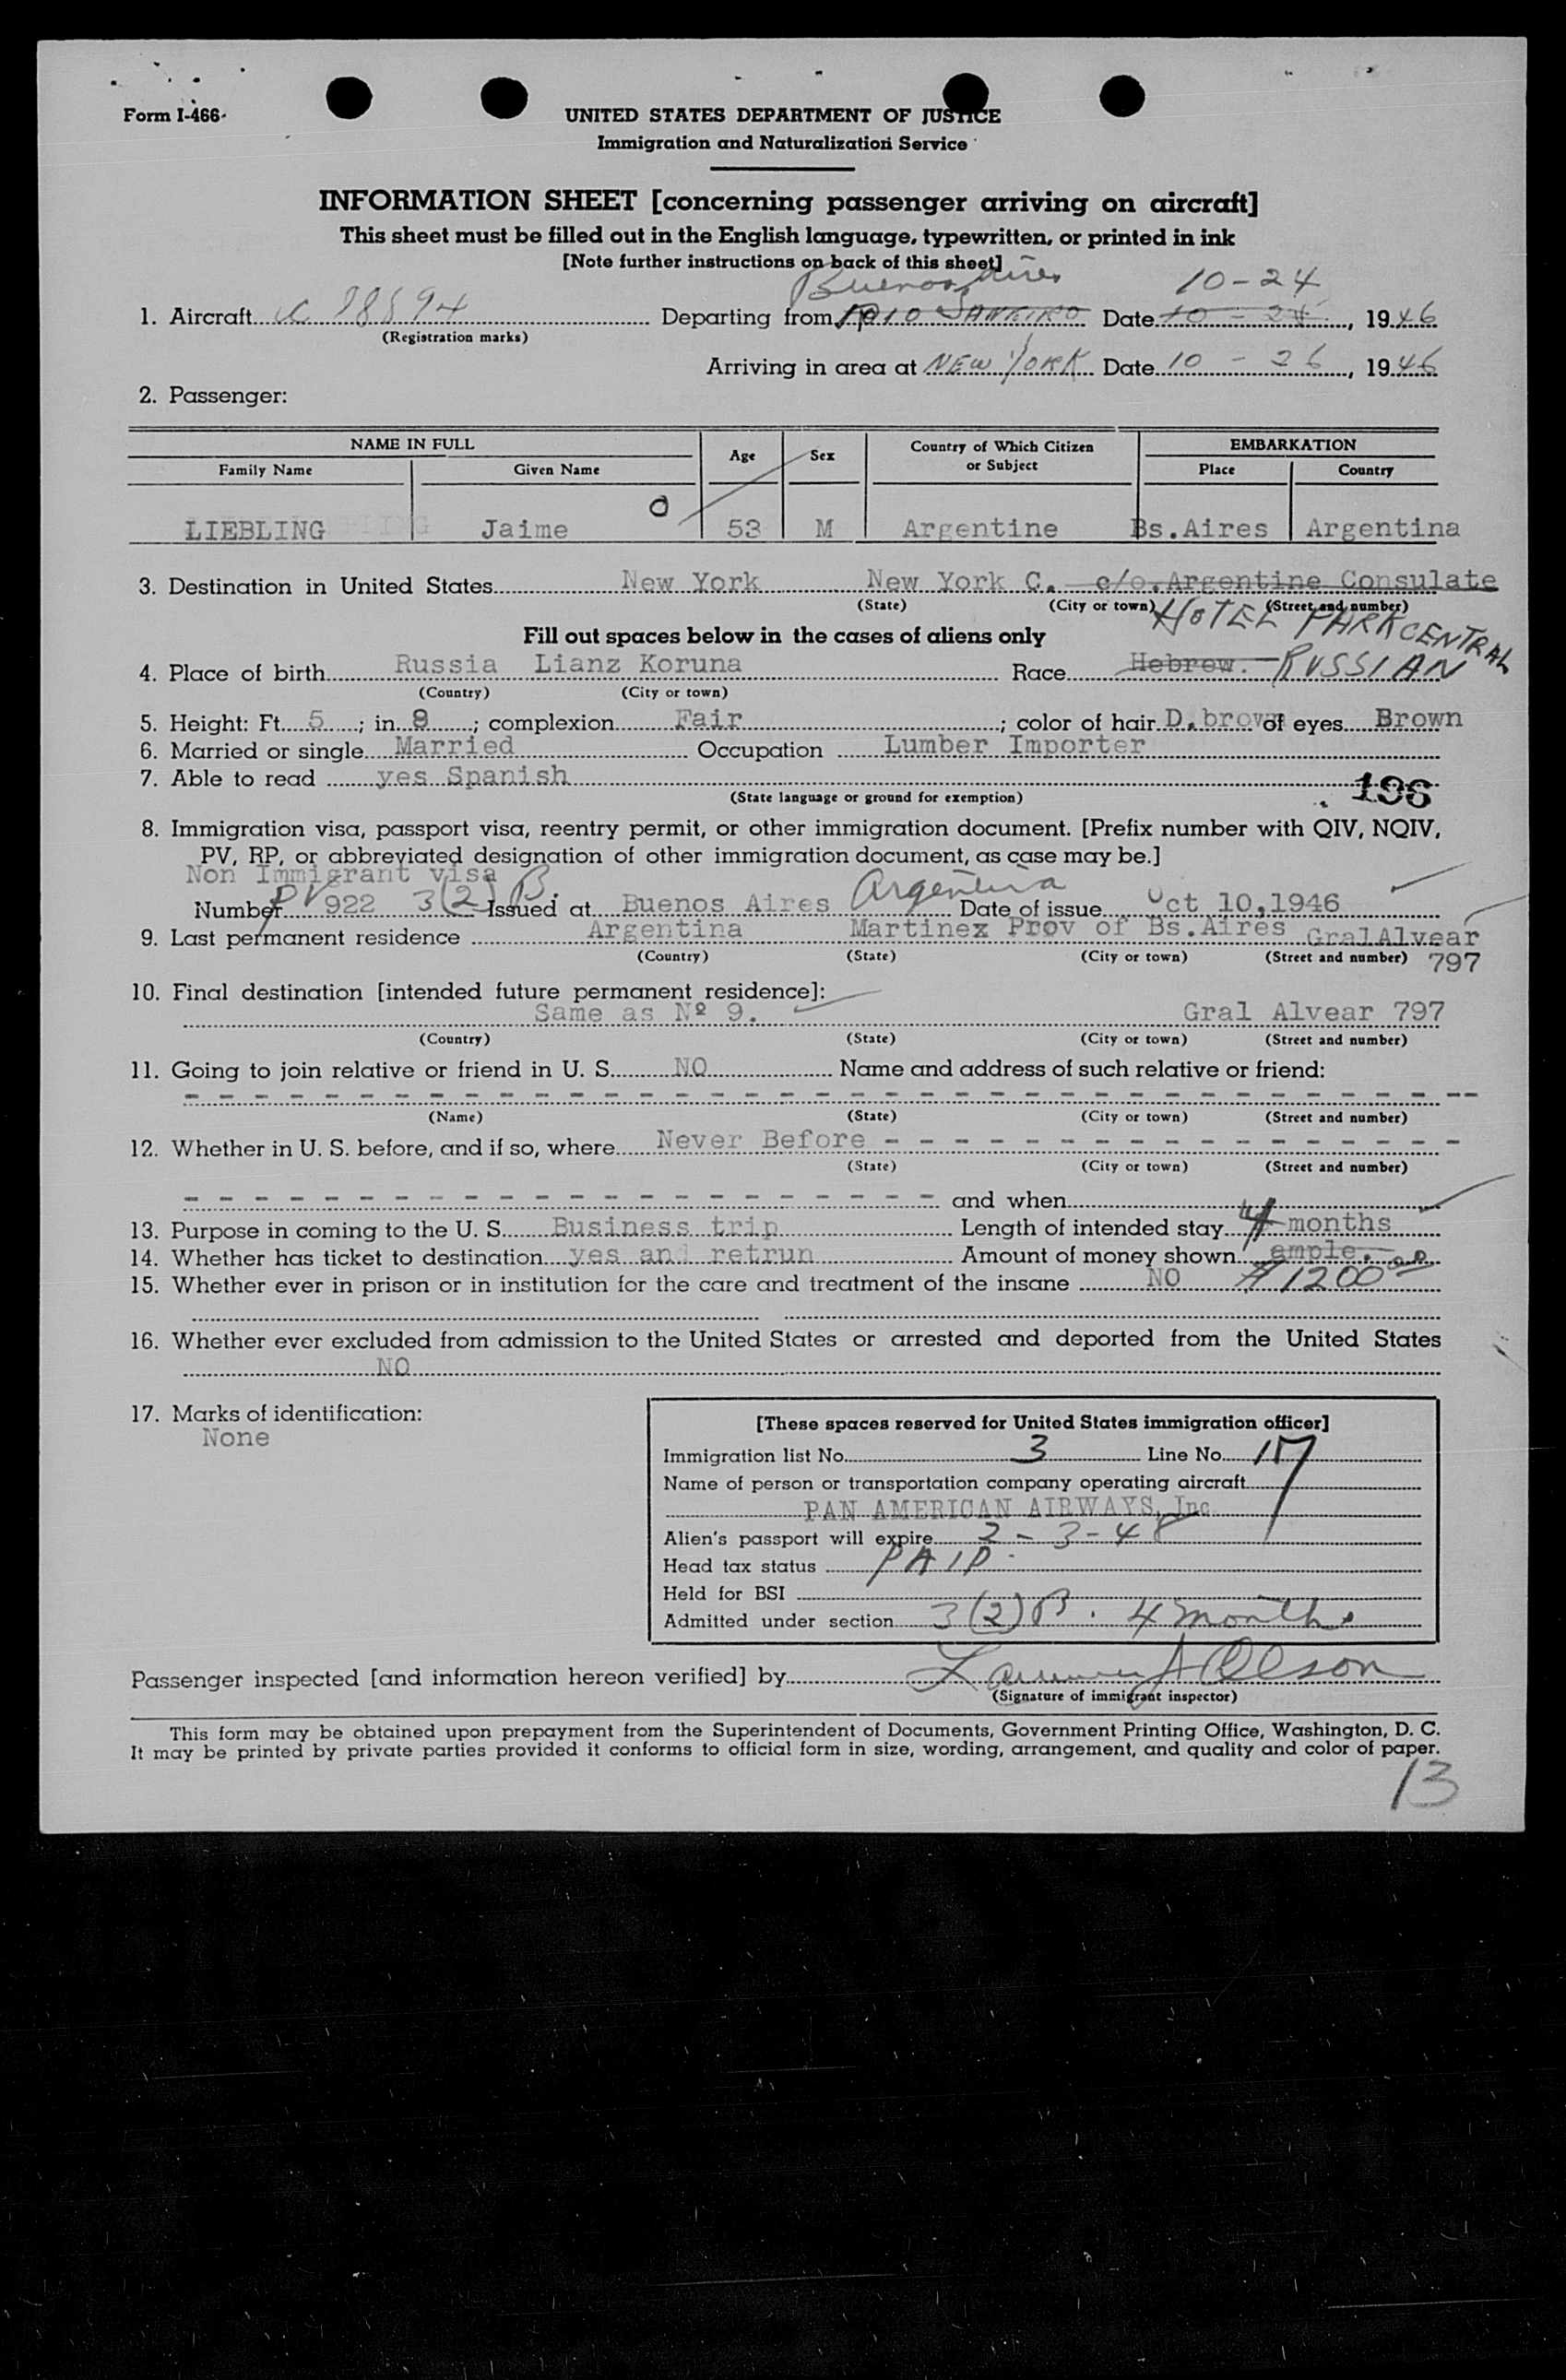 Form I-466
UNITED STATES DEPARTMENT OF JUSTICE
Immigration and Naturalization Service
INFORMATION SHEET [concerning passenger arriving on aircraft]
This sheet must be filled out in the English language, typewritten, or printed in ink
[Note further instructions on back of this sheet]
Buenos Aires 10-24
1. Aircraft 98894 Departing from Date 10 - 24, 1946
(Registration marks)
Arriving in area at NEW YORK Date 10 - 26, 1946
2. Passenger:
NAME IN FULL Age Sex Country of Which Citizen or Subject EMBARKATION
Family Name Given Name Place Country
LIEBLING Jaime 53 M Argentine Bs.Aires Argentina
3. Destination in United States New York New York C. c/o.Argentine Consulate
(State) (City or town) (Street and number)
HOTEL PARK CENTRAL
Fill out spaces below in the cases of aliens only
4. Place of birth Russia Lianz Koruna Race Hebrew. RUSSIAN
(Country) (City or town)
5. Height: Ft. 5; in. 8; complexion Fair; color of hair D.brown of eyes Brown
6. Married or single Married Occupation Lumber Importer
7. Able to read yes Spanish
(State language or ground for exemption) 196
8. Immigration visa, passport visa, reentry permit, or other immigration document. [Prefix number with QIV, NQIV,
PV, RP, or abbreviated designation of other immigration document, as case may be.]
Non Immigrant visa
Number PV 922 3(2)B. Issued at Buenos Aires Argentina Date of issue Oct 10,1946
9. Last permanent residence Argentina Martinex Prov of Bs.Aires Gral Alvear
(Country) (State) (City or town) (Street and number) 797
10. Final destination [intended future permanent residence]:
Same as Nº 9. Gral Alvear 797
(Country) (State) (City or town) (Street and number)
11. Going to join relative or friend in U. S. NO Name and address of such relative or friend:
(Name) (State) (City or town) (Street and number)
12. Whether in U. S. before, and if so, where Never Before
(State) (City or town) (Street and number)
and when
13. Purpose in coming to the U. S. Business trip Length of intended stay 4 months
14. Whether has ticket to destination yes and retrun Amount of money shown ample.
15. Whether ever in prison or in institution for the care and treatment of the insane NO $1200.00
16. Whether ever excluded from admission to the United States or arrested and deported from the United States
NO
17. Marks of identification:
None
[These spaces reserved for United States immigration officer]
Immigration list No. 3 Line No. 17
Name of person or transportation company operating aircraft
PAN AMERICAN AIRWAYS, Inc.
Alien's passport will expire 2-3-48
Head tax status PAID
Held for BSI
Admitted under section 3(2)B. 4 months
Passenger inspected [and information hereon verified] by Olson
(Signature of immigrant inspector)
This form may be obtained upon prepayment from the Superintendent of Documents, Government Printing Office, Washington, D. C.
It may be printed by private parties provided it conforms to official form in size, wording, arrangement, and quality and color of paper.
13